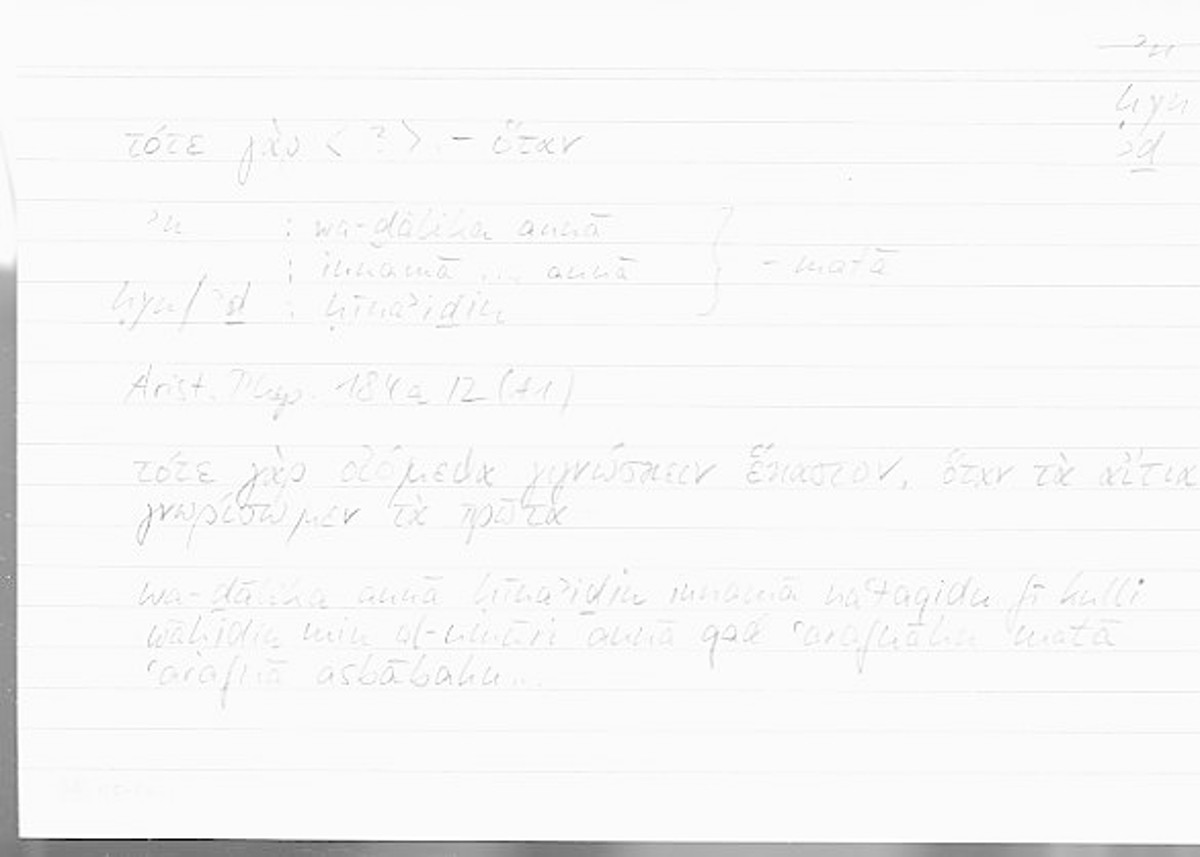 ʾn
ḥyn
ʾḏ
τότε γὰρ < ? > – ὅταν
ʾn : wa-ḏālika annā
: innamā ... annā } – matā
ḥyn/ʾḏ : ḥīnaʾiḏin
Arist. Phys. 184a 12 (A1)
τότε γὰρ οἰόμεθα γιγνώσκειν ἕκαστον, ὅταν τὰ αἴτια
γνωρίσωμεν τὰ πρῶτα
wa-ḏālika annā ḥīnaʾiḏin innamā naʿtaqidu fī kulli
wāḥidin min al-umūri annā qad ʿarafnāhu matā
ʿarafnā asbābahu...